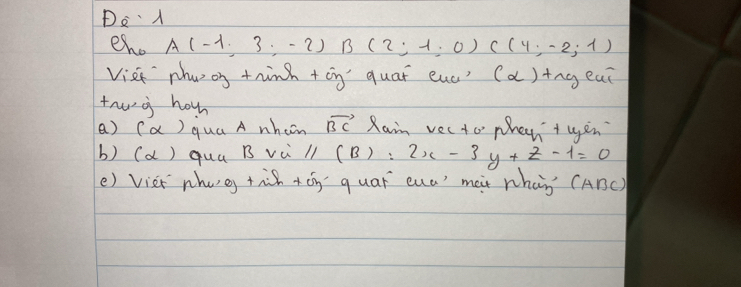 Đề: 1
Cho A(-1; 3; -2) B(2; 1; 0) C(4; -2; 1)
Viết phương trình tổng quát của (α) trong các
trường hợp
a) (α) qua A nhận BC làm vectơ pháp tuyến
b) (α) qua B và // (B): 2x - 3y + z - 1 = 0
c) Viết phương trình tổng quát của mặt phẳng (ABC)